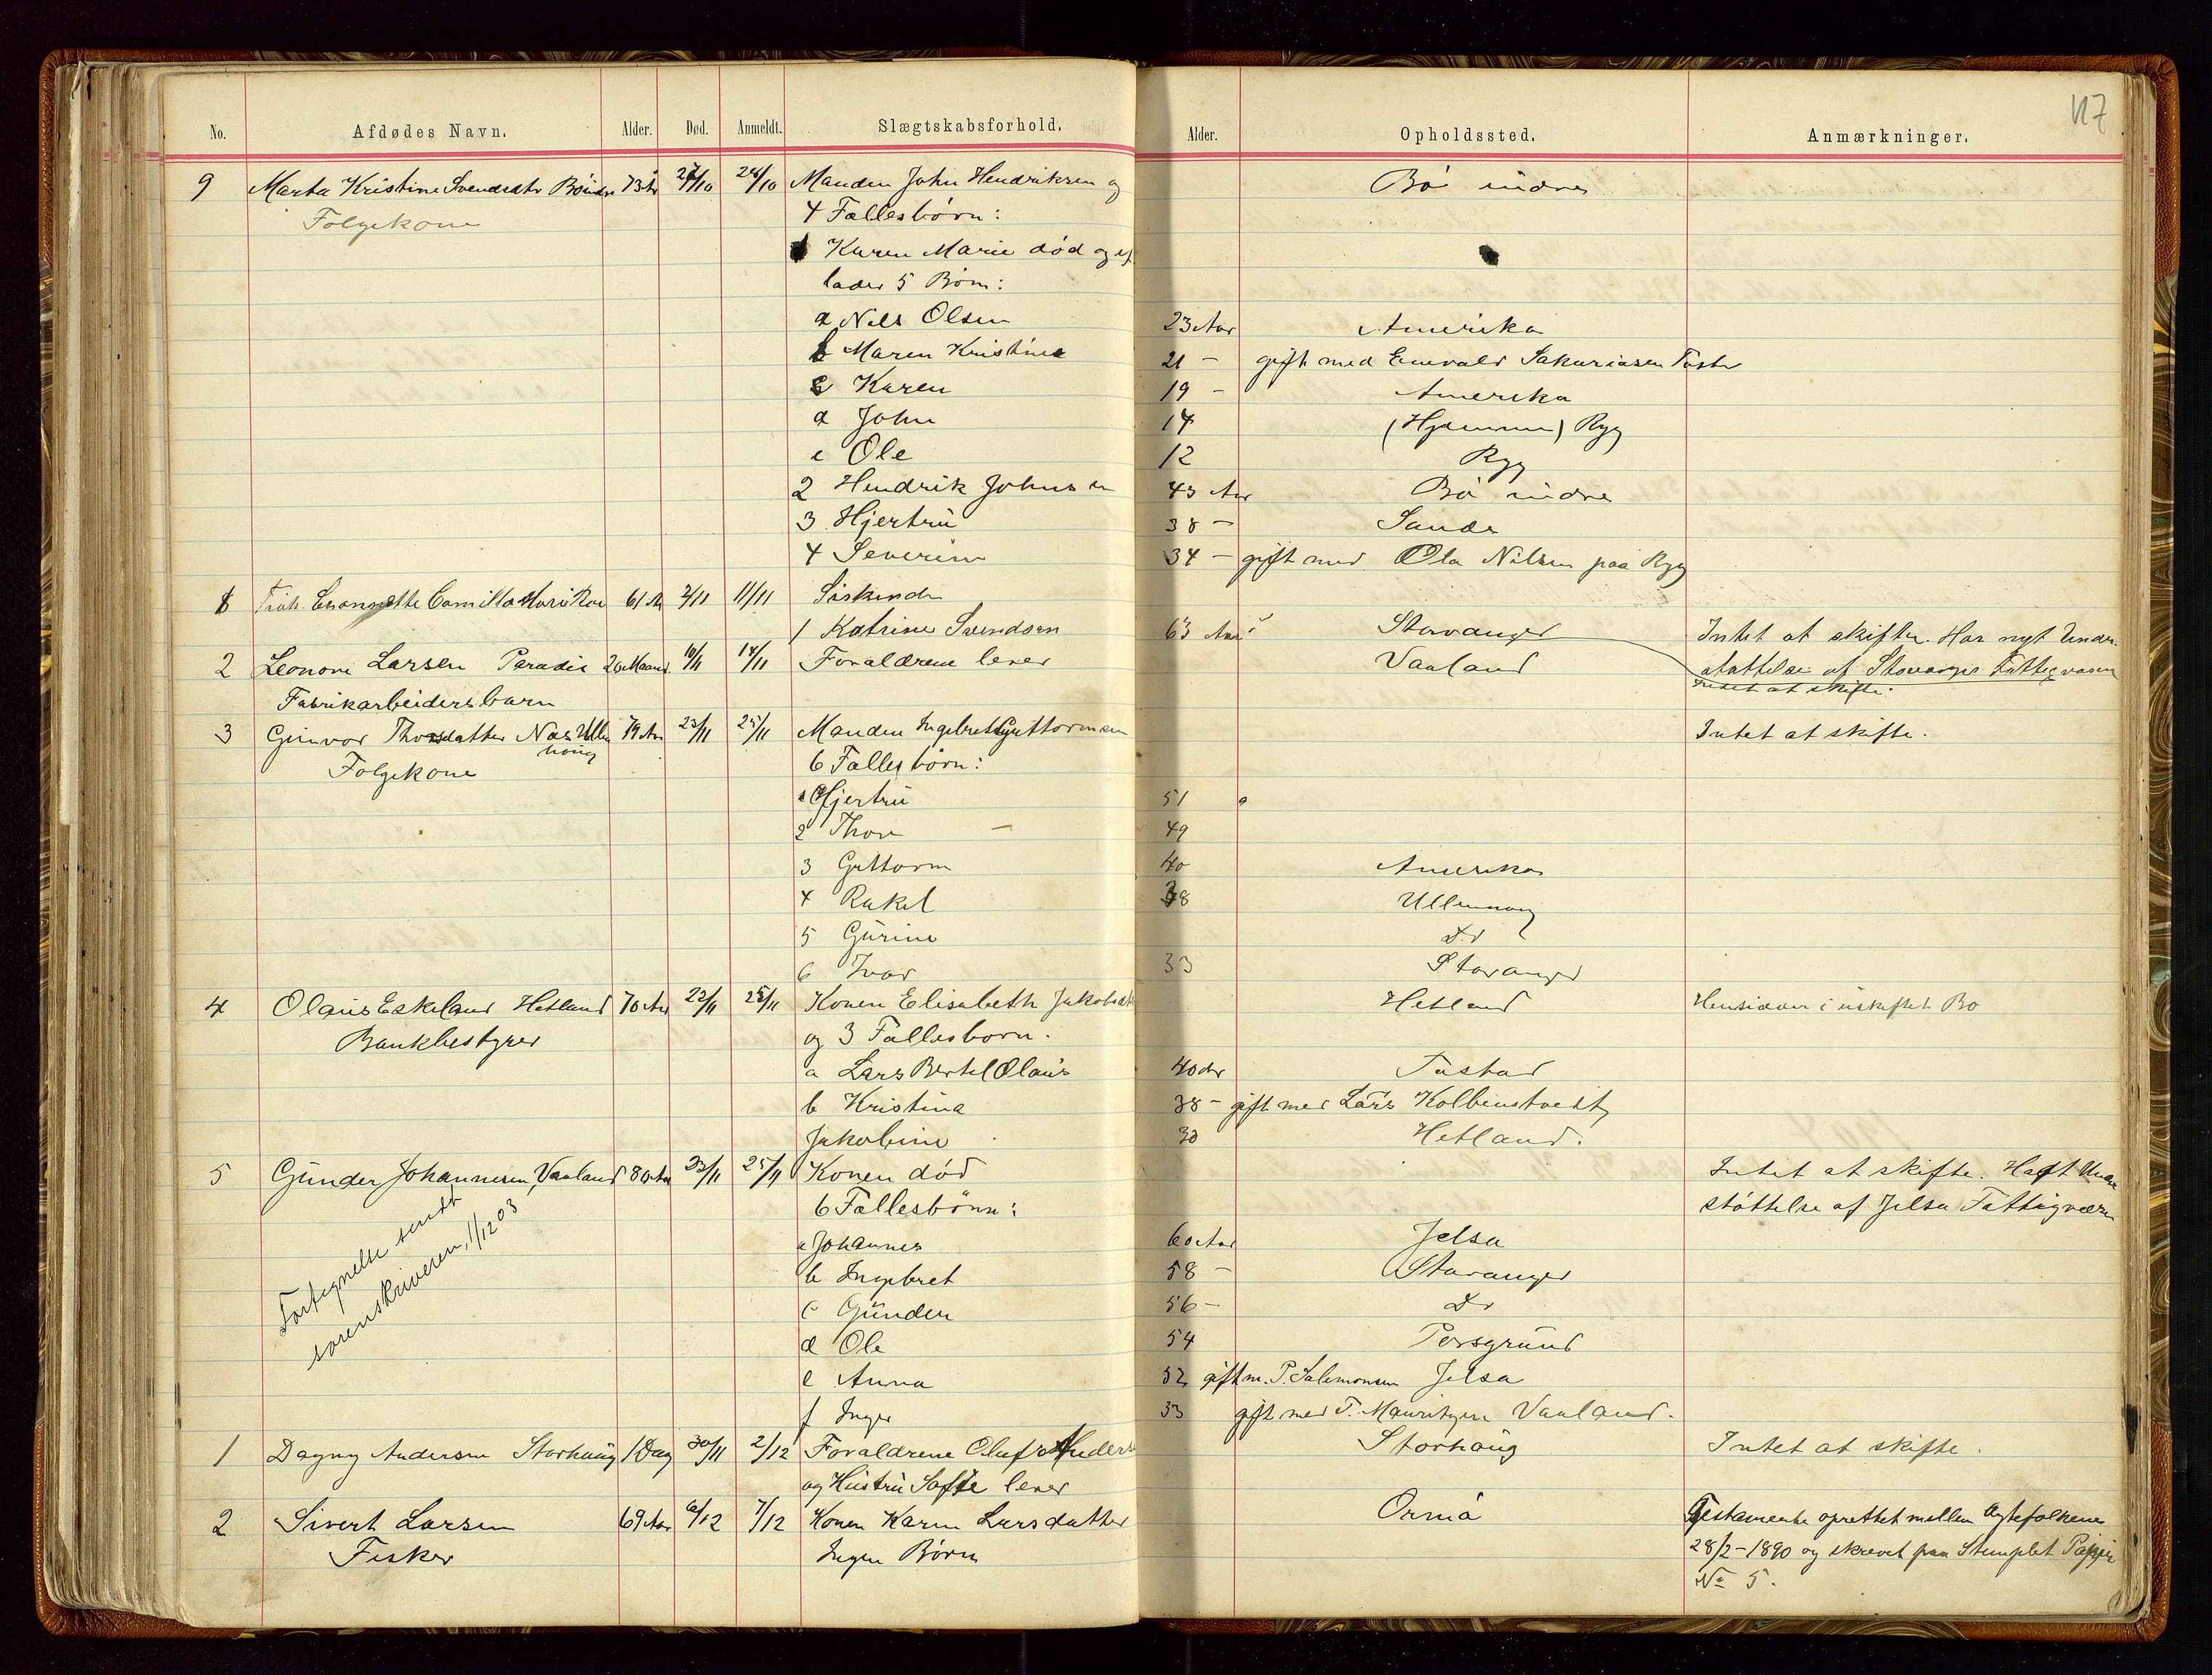 117
No. Afdødes Navn. Alder. Død. Anmeldt. Slægtskabsforhold. Alder. Opholdssted. Anmærkninger.
9 Marta Kristine Svendsdtr Bö indre 73 Ar 27/10 28/10 Manden John Hendriksen og Bö indre
Folgekone 4 Fællesbörn:
1 Karen Marie död og ef
lader 5 Börn:
a Nils Olsen 23 Aar Amerika
b Maren Kristina 21 - gift med Enevald Sakariasen Tasta
c Karen 19 - Amerika
d John 14 (Hjemme) Ryg
e Ole 12 Ryg
2 Hendrik Johnsen 43 Aar Bö indre
3 Hjertru 38 - Sande
4 Severine 34 - gift med Ola Nilsen paa Ryg
1 Camilla 61 Ar 2/11 11/11 Söskende
1 Katrine Svendsen 63 Aar Stavanger Intet at skifte. Har nydt Under-
2 Leonore Larsen Paradis 20 Maaned 10/11 14/11 Forældrene lever Vaaland støttelse af Stavanger Fattigvæsen
Fabrikarbeidersbarn Intet at skifte.
3 Gunvor Thorsdatter 79 Aar 23/11 25/11 Manden Ingebret Guttormsen Intet at skifte.
Folgekone 6 Fællesbörn:
1 Hjertru 51
2 Thore 49
3 Guttorm 40 Amerika
4 Rakel 38 Ullenhaug
5 Gurine Do
6 Ivar 33 Stavanger
4 Olaus Eskeland Hetland 70 Aar 22/11 25/11 Konen Elisabeth Jakobsdt Hetland Hensidder i uskiftet Bo
Bankbestyrer og 3 Fællesbörn.
a Lars Bertel Olaus 40 Aar Tastad
b Kristina 38 - gift med Lars Kolbenstvedt
Jakobine 30 Hetland.
5 Gunder Johannesen Vaaland 80 Aar 23/11 25/11 Konen död Intet at skifte. Haft Under
6 Fællesbörn: støttelse af Jelsa Fattigvæsen
Fortegnelse sendt
sorenskriveren, 1/12 03
a Johannes 60 Aar Jelsa
b Ingebret 58 - Stavanger
c Gunder 56 - Do
d Ole 54 Porsgrund
e Anna 52 gift m. P. Salomonsen Jelsa
f Inger 33 gift med T. Mauritzen Vaaland.
1 Dagny Andersen Storhaug 1 Dag 30/11 2/12 Forældrene Oluf Anders Storhaug Intet at skifte.
og Hustru Sofie lever
2 Sivert Larsen 69 Aar 6/12 7/12 Konen Karen Larsdatter Ormö Testamente oprettet mellem Ægtefolkene
Fisker Ingen Börn 28/2-1890 og skrevet paa Stemplet Papir
No 5.